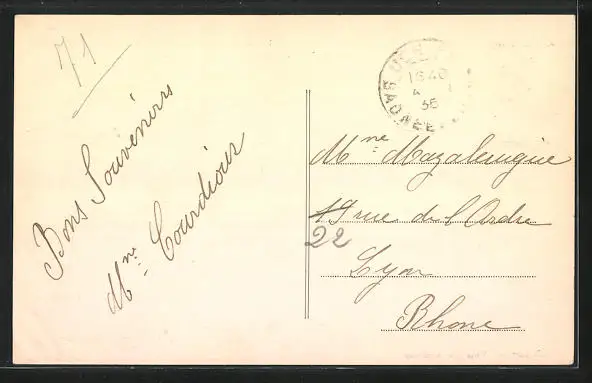 71
Bons Souvenirs
Mr. Courdioux
18 40
4
36
SAONE
Mme Mazalemigue
19 rue de l'Ordre
22
Lyon
Rhone